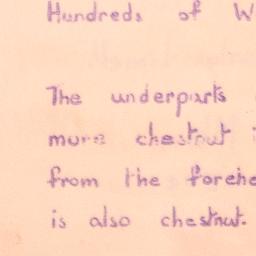 Hundreds of W
The underparts
more chestnut
from the forehe
is also chestnut.